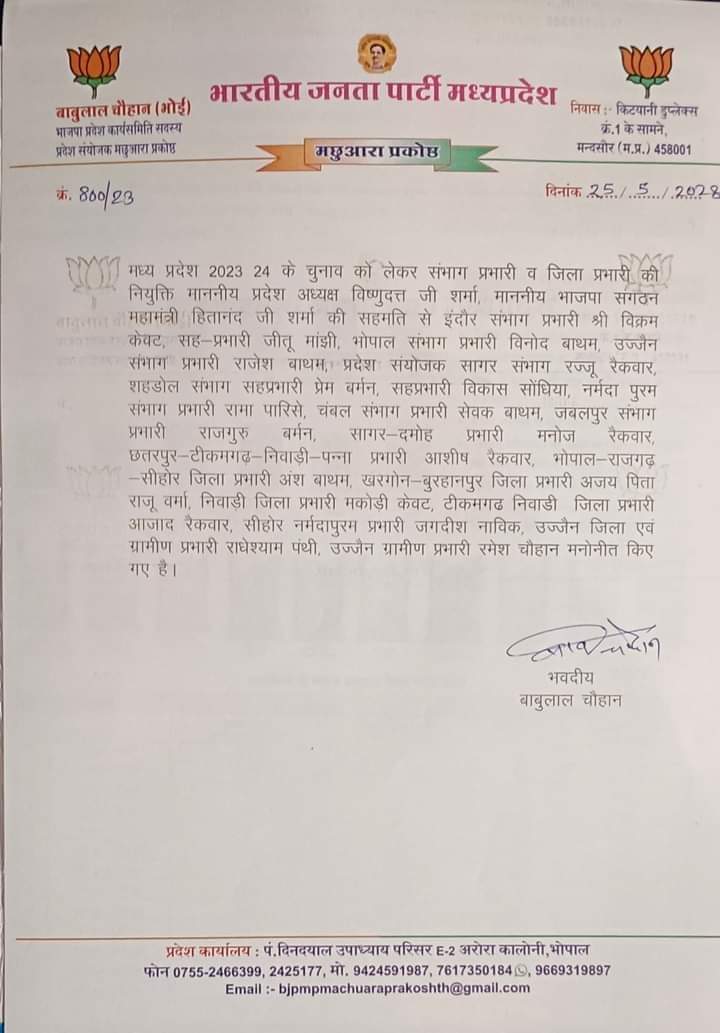 भारतीय जनता पार्टी मध्यप्रदेश
मछुआरा प्रकोष्ठ
बाबुलाल चौहान (भोई)
भाजपा प्रदेश कार्यसमिति सदस्य
प्रदेश संयोजक मछुआरा प्रकोष्ठ
निवास :- किटयानी डुप्लेक्स
क्रं.1 के सामने,
मन्दसौर (म.प्र.) 458001
क्रं. 800/23
दिनांक 25/5/2023
मध्य प्रदेश 2023 24 के चुनाव को लेकर संभाग प्रभारी व जिला प्रभारी की
नियुक्ति माननीय प्रदेश अध्यक्ष विष्णुदत्त जी शर्मा, माननीय भाजपा संगठन
महामंत्री हितानंद जी शर्मा की सहमति से इंदौर संभाग प्रभारी श्री विक्रम
केवट, सह-प्रभारी जीतू मांझी, भोपाल संभाग प्रभारी विनोद बाथम, उज्जैन
संभाग प्रभारी राजेश बाथम, प्रदेश संयोजक सागर संभाग रज्जू रैकवार,
शहडोल संभाग सहप्रभारी प्रेम बर्मन, सहप्रभारी विकास सोंधिया, नर्मदा पुरम
संभाग प्रभारी रामा पारिसे, चंबल संभाग प्रभारी सेवक बाथम, जबलपुर संभाग
प्रभारी राजगुरु बर्मन, सागर-दमोह प्रभारी मनोज रैकवार,
छतरपुर-टीकमगढ़-निवाड़ी-पन्ना प्रभारी आशीष रैकवार, भोपाल-राजगढ़
-सीहोर जिला प्रभारी अंश बाथम, खरगोन-बुरहानपुर जिला प्रभारी अजय पिता
राजू वर्मा, निवाड़ी जिला प्रभारी मकोड़ी केवट, टीकमगढ निवाडी जिला प्रभारी
आजाद रैकवार, सीहोर नर्मदापुरम प्रभारी जगदीश नाविक, उज्जैन जिला एवं
ग्रामीण प्रभारी राधेश्याम पंथी, उज्जैन ग्रामीण प्रभारी रमेश चौहान मनोनीत किए
गए है।
भवदीय
बाबुलाल चौहान
प्रदेश कार्यालय : पं.दिनदयाल उपाध्याय परिसर E-2 अरोरा कालोनी,भोपाल
फोन 0755-2466399, 2425177, मो. 9424591987, 7617350184, 9669319897
Email :- bjpmpmachuaraprakoshth@gmail.com